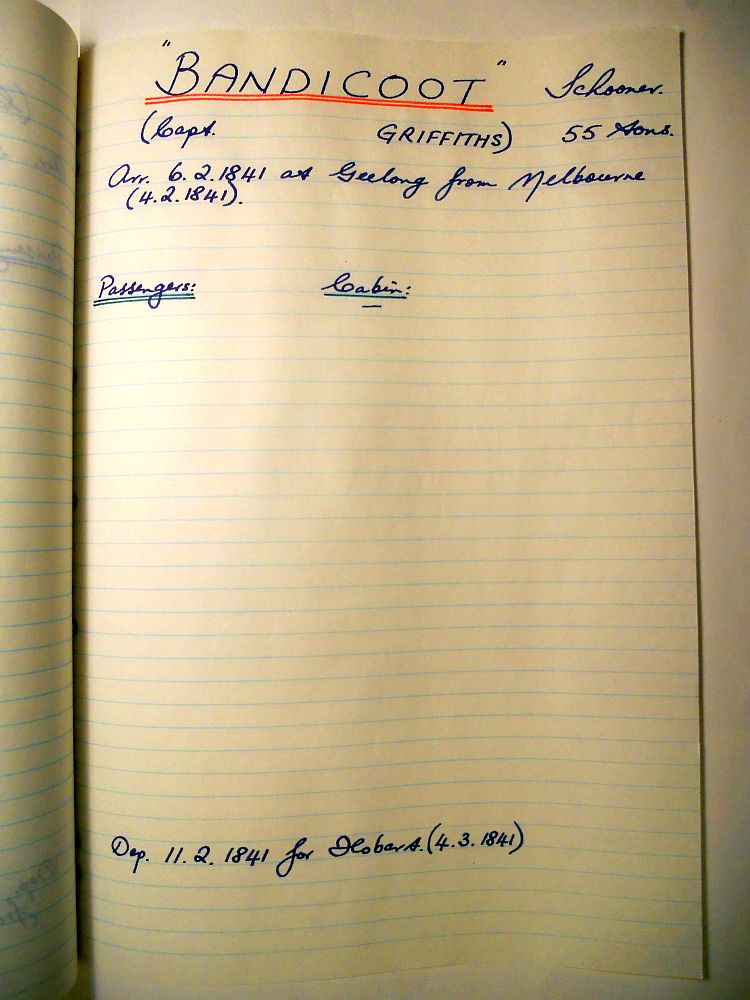 "BANDICOOT" Schooner.
(Capt. GRIFFITHS) 55 tons.
Arr. 6.2.1841 at Geelong from Melbourne
(4.2.1841).
Passengers: Cabin:
—
Dep. 11.2.1841 for Hobart. (4.3.1841)